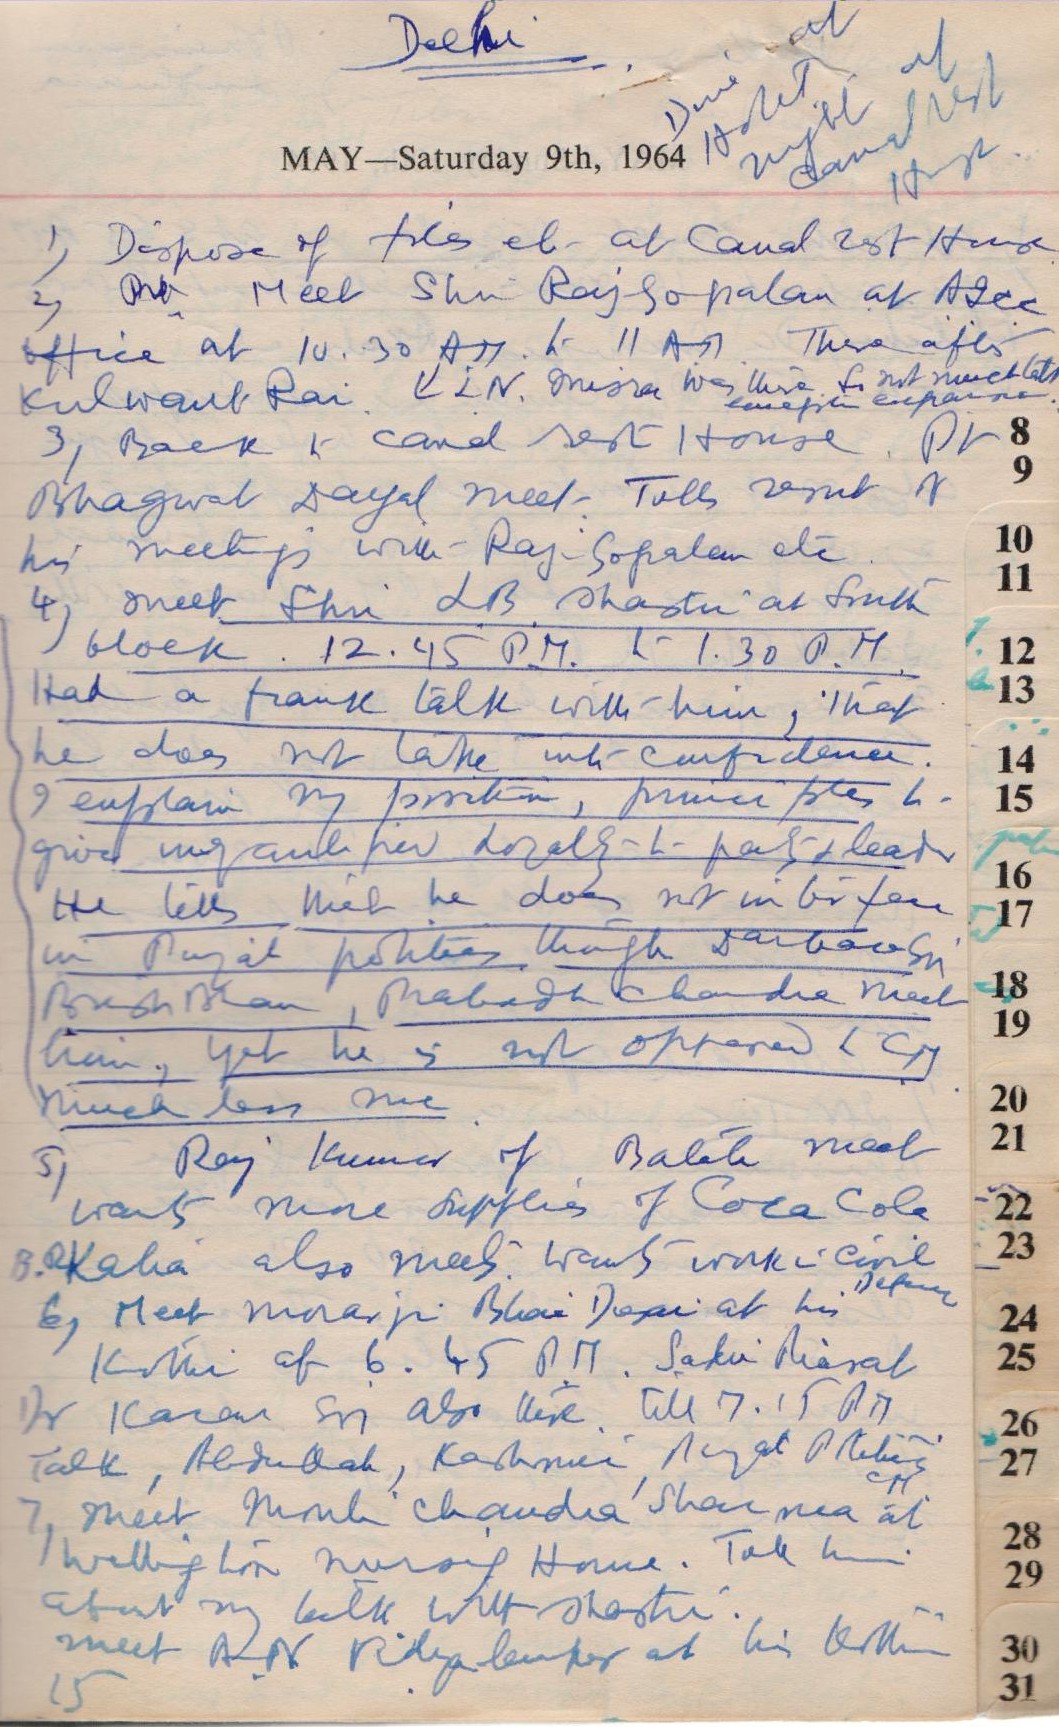 Delhi
at
Hotel
night at
Canal rest
House
MAY—Saturday 9th, 1964
1, Dispose of files etc at Canal rest House
2, Meet Shri Rajgopalan at AICC
office at 10.30 AM to 11 AM. There after
Kulwant Rai. L.N. Misra was there so not much talk
3, Back to canal rest House. Pt
Bhagwat Dayal meet. Tells result of
his meetings with Rajgopalan etc.
4, meet Shri L B Shastri at South
block. 12.45 P.M. to 1.30 P.M.
Had a frank talk with him, that
he does not take into confidence.
I explain my position, principles to
give loyalty to party & leader
He tells that he does not interfere
in Punjab politics though Darbara Sing
Brish Bhan, Prabodh Chandra meet
him, yet he is not opposed to CM
much less me
5, Raj Kumar of Batala meet
wants more supplies of Coca Cola
Kalia also meets. wants work in Civil
Defence
6, Meet Morarji Bhai Desai at his
Kothi at 6.45 P.M.
Dr Karan Sing also there. till 7.15 PM
Talk, Abdullah, Kashmir, Punjab Politics
CM
7, meet Mouli Chandra Sharma at
Wellington nursing Home. Talk him
about my talk with Shastri.
meet A.N. Vidyalankar at his Kothi
15
8
9
10
11
12
13
14
15
16
17
18
19
20
21
22
23
24
25
26
27
28
29
30
31